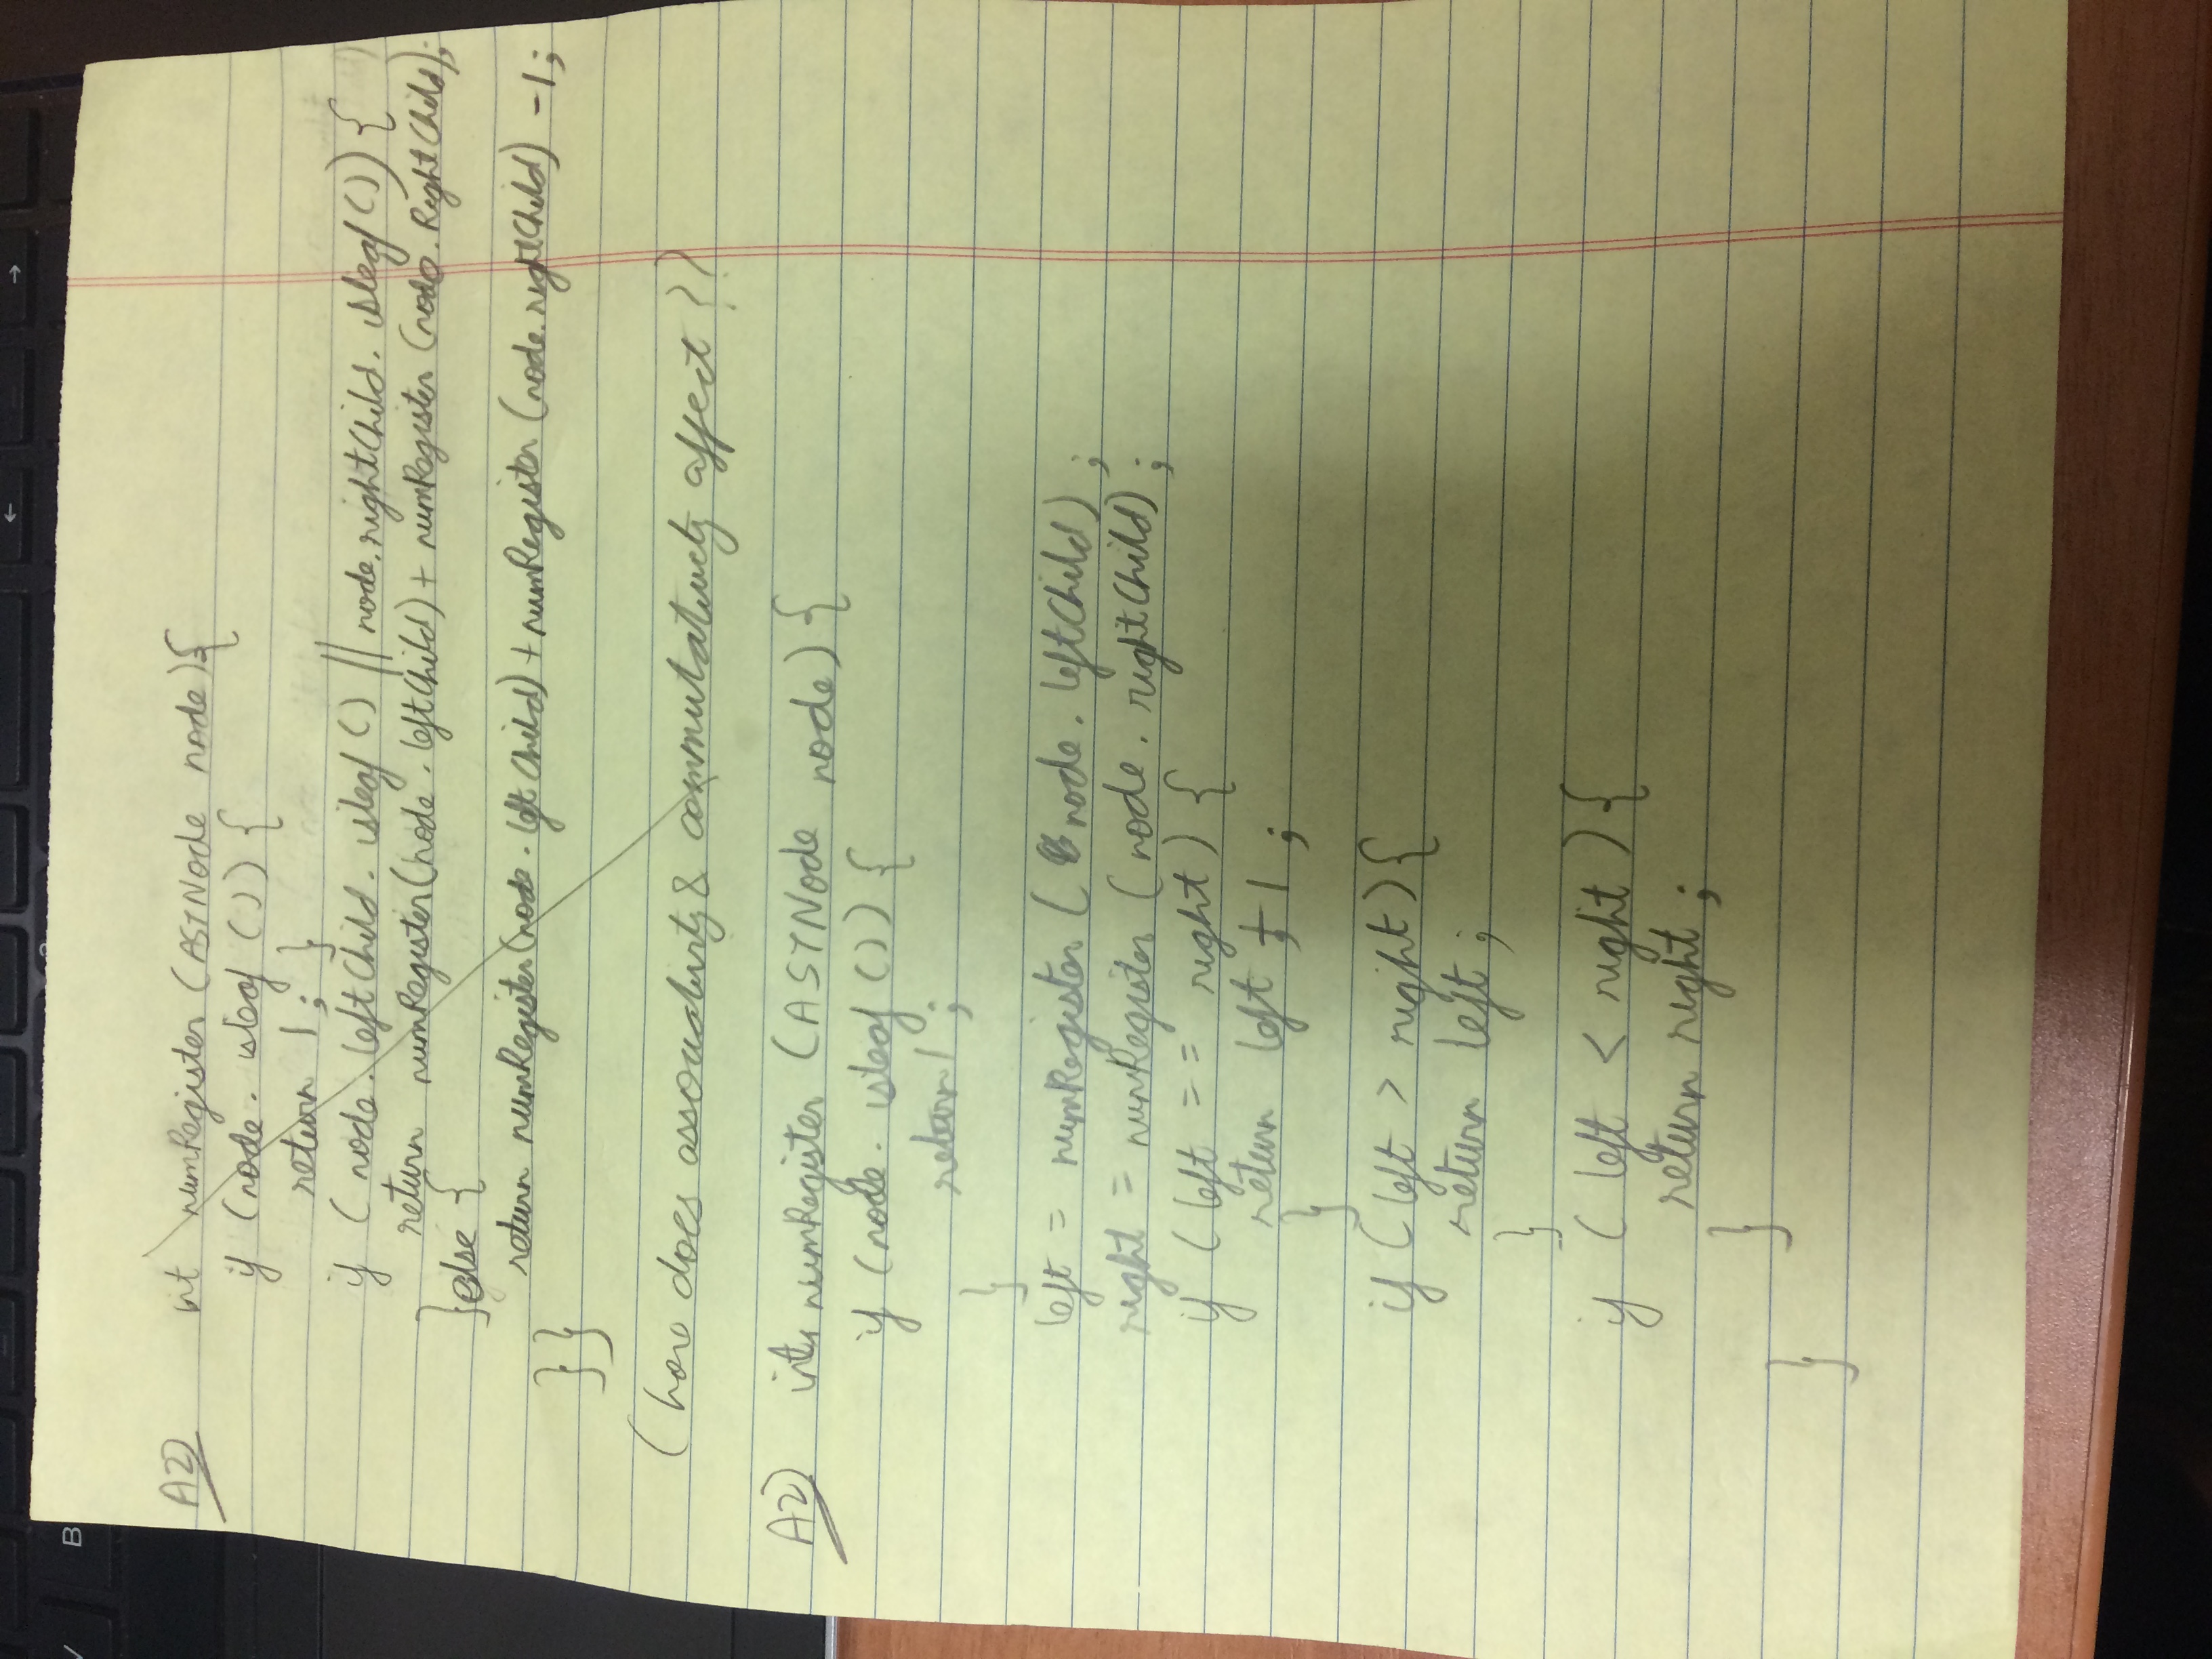 B
A2) int numRegister (ASTNode node){
if (node. isleaf ()) {
return 1; }
if ( node. leftChild. isleaf () || node.rightChild. isleaf ()) {
return numRegister(node. leftChild) + numRegister (node. RightChild);
}else {
return numRegister(node. leftChild) + numRegister (node.rightChild) -1;
}}
(how does associativity & commutativity affect ??
A2) int numRegister (ASTNode node) {
if (node. isleaf ()) {
return 1 ;
}
left = numRegister ( node. leftChild) ;
right = numRegister (node. rightChild) ;
if ( left == right) {
return left + 1 ;
}
if (left > right){
return left ;
}
if ( left < right ) {
return right ;
}
}